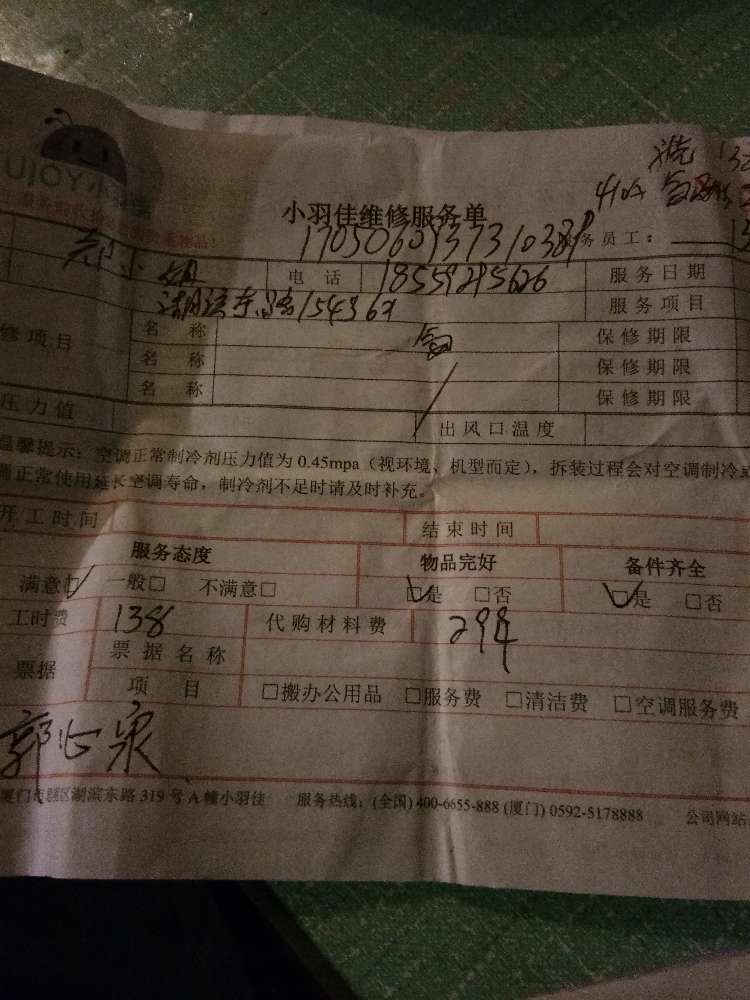 小羽佳维修服务单
1705060937310389 服务员工：
郭小姐 电话 18559295626 服务日期
服务项目
修项目 名称 保修期限
名称 保修期限
名称 保修期限
压力值 出风口温度
温馨提示：空调正常制冷剂压力值为0.45mpa（视环境、机型而定），拆装过程会对空调制冷
正常使用延长空调寿命，制冷剂不足时请及时补充。
开工时间 结束时间
服务态度 物品完好 备件齐全
满意☑ 一般□ 不满意□ ☑是 □否 ☑是 □否
工时费 138 代购材料费 294
票据 票据名称
项目 □搬办公用品 □服务费 □清洁费 □空调服务费
郭心泉
厦门市 区湖滨东路319号A幢小羽佳 服务热线：(全国) 400-6655-888 (厦门) 0592-5178888 公司网站